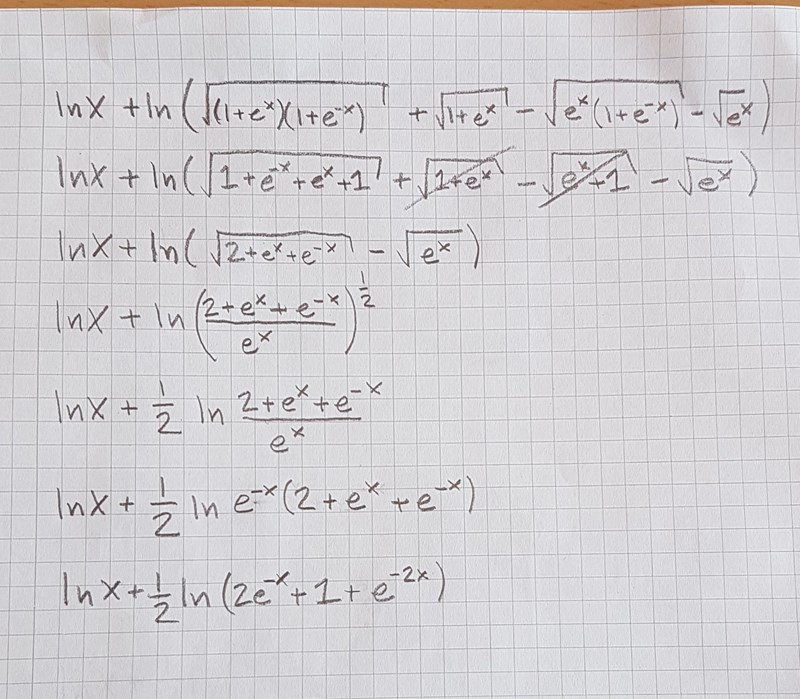 ln x + ln(√((1+e^x)(1+e^-x)) + √(1+e^x) - √(e^x(1+e^-x)) - √e^x)
ln x + ln(√(1+e^-x+e^x+1) + √(1+e^x) - √(e^x+1) - √(e^x))
ln x + ln(√(2+e^x+e^-x) - √(e^x))
ln x + ln((2+e^x+e^-x)/e^x)^(1/2)
ln x + 1/2 ln (2+e^x+e^-x)/e^x
ln x + 1/2 ln e^-x(2+e^x+e^-x)
ln x + 1/2 ln(2e^-x+1+e^-2x)